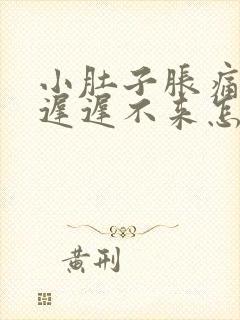 小肚子胀痛
迟迟不来怎
黄刑